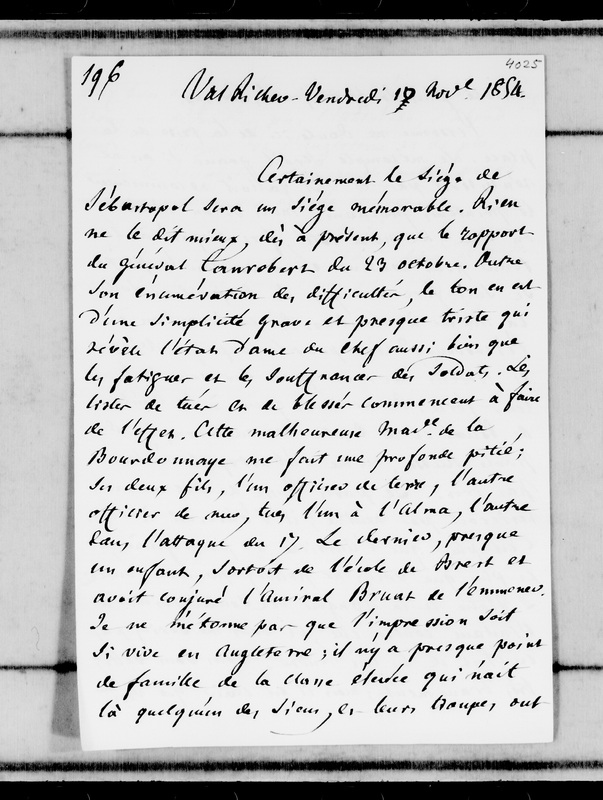 4025
196
Val Richer - Vendredi 17 Novb 1854.
Certainement le siége de
Sébastopol sera un siége mémorable. Rien
ne le dit mieux, dès à présent, que le rapport
du général Canrobert du 23 octobre. Outre
son énumération des difficultés, le ton en est
d'une simplicité grave et presque triste qui
révèle l'état d'ame du chef aussi bien que
les fatigues et les souffrances des soldats. Les
listes de tués et de blessés commencent à faire
de l'effet. Cette malheureuse Made de la
Bourdonnaye me fait une profonde pitié ;
ses deux fils, l'un officier de terre, l'autre
officier de mer, tués l'un à l'Alma, l'autre
dans l'attaque du 17. Le dernier, presque
un enfant, sortoit de l'école de Brest et
avoit conjuré l'amiral Bruat de l'emmener.
Je ne m'étonne pas que l'impression soit
si vive en Angleterre ; il n'y a presque point
de famille de la classe élevée qui n'ait
là quelqu'un des siens, et leurs troupes ont